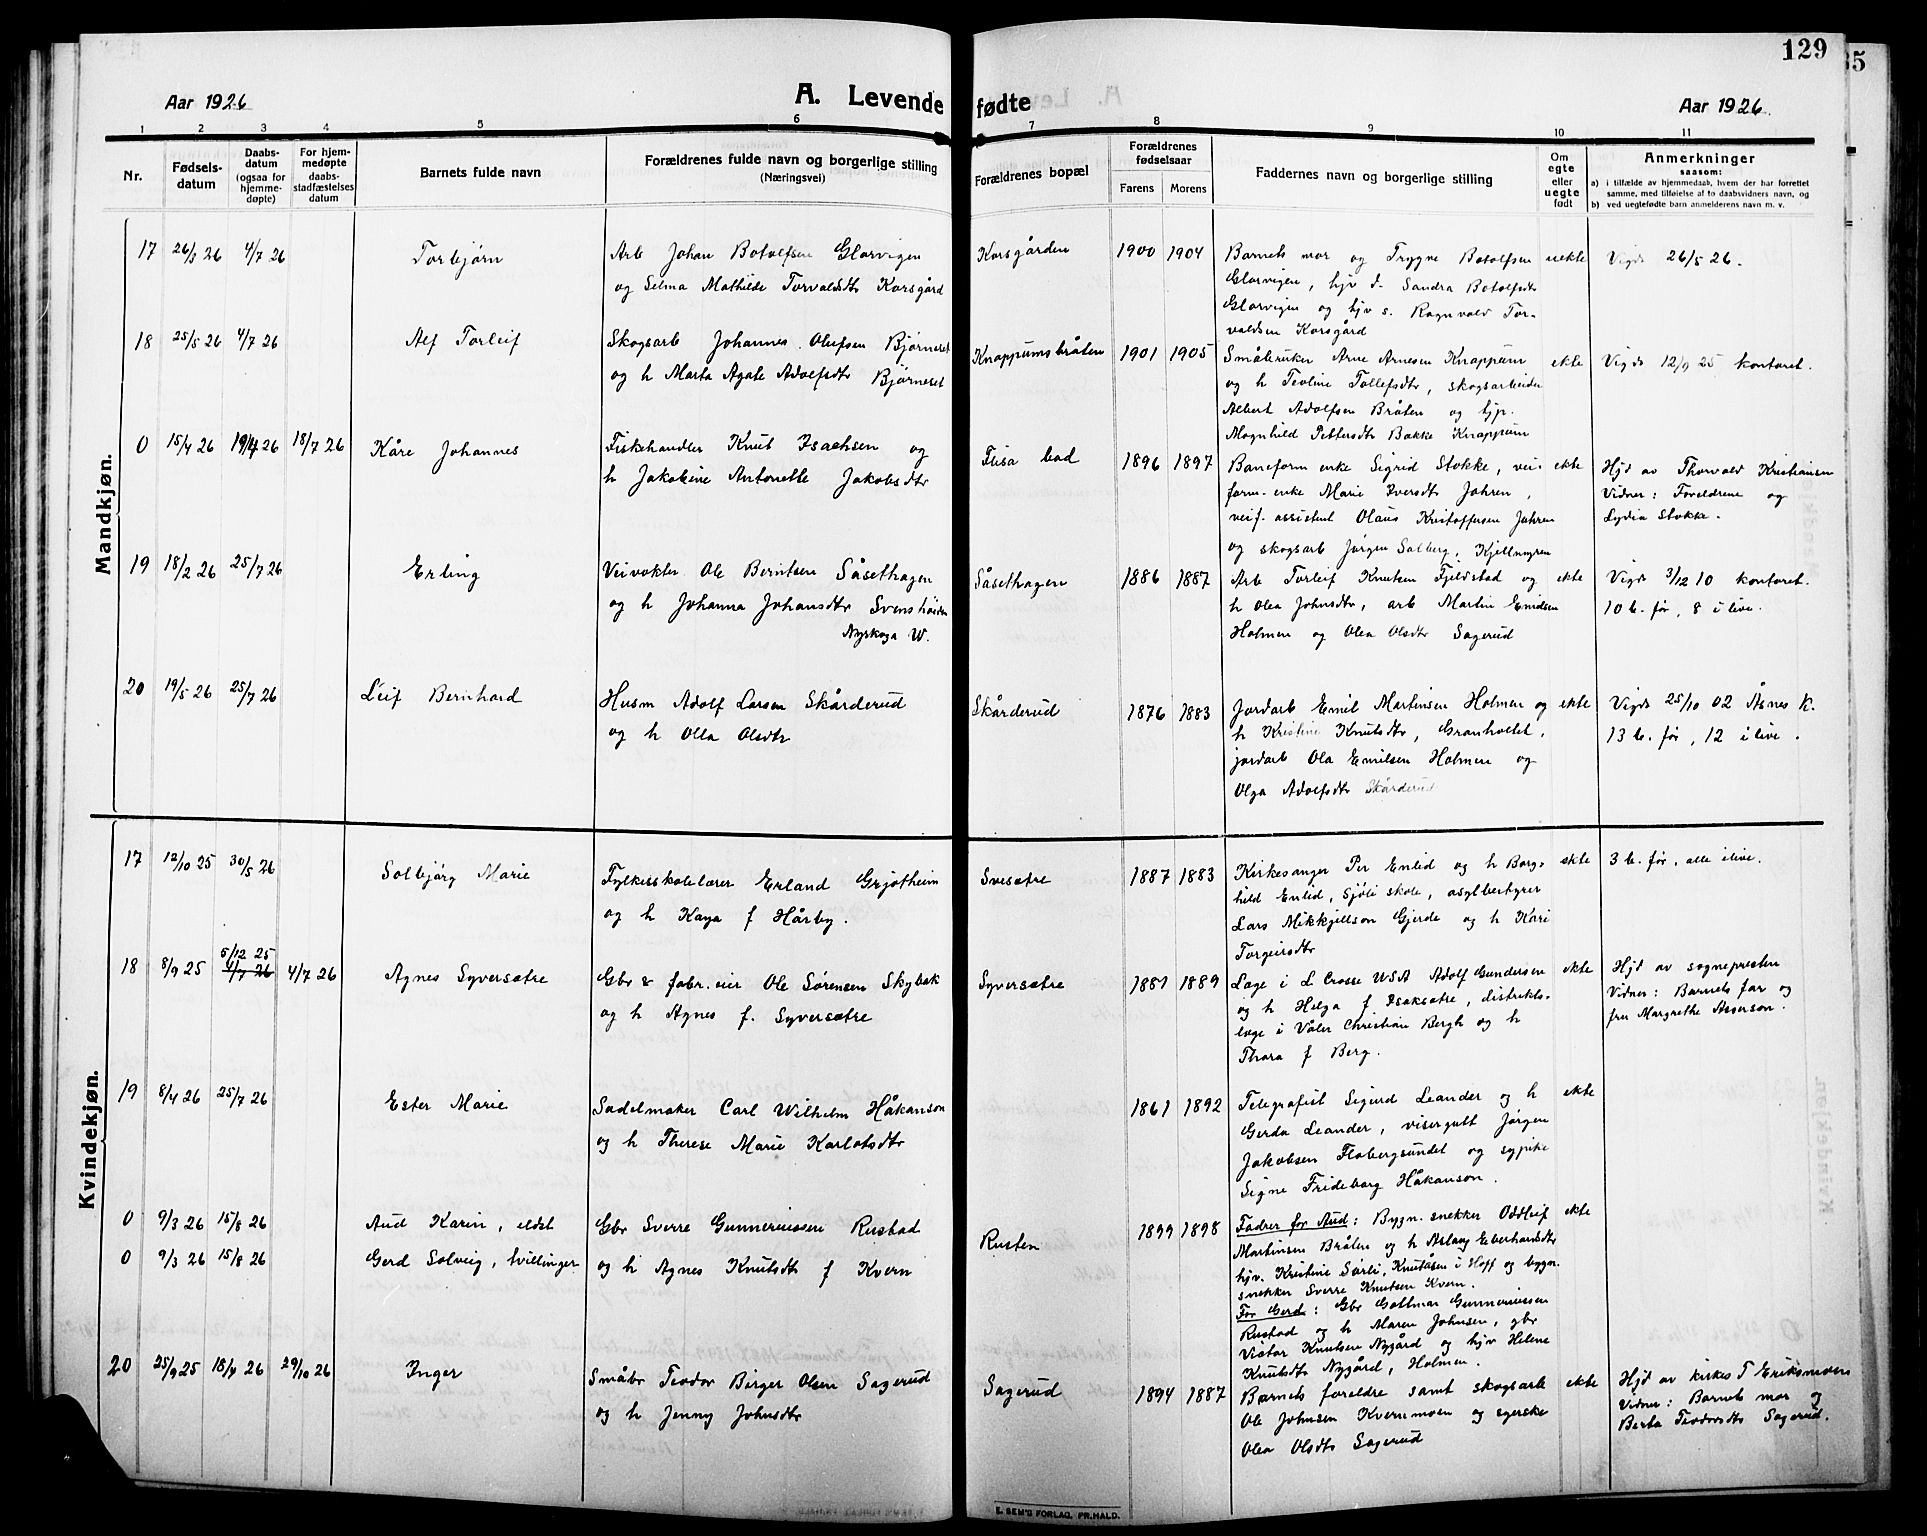 129
35
Aar 1926
A. Levende fødte
Aar 1926.
1 2 3 4 5 6 7 8 9 10 11
Nr.
Fødsels-
datum
Daabs-
datum
(ogsaa for
hjemme-
døpte)
For hjem-
medøpte
daabs-
stadfæstelses
datum
Barnets fulde navn
Forældrenes fulde navn og borgerlige stilling
(Næringsvei)
Forældrenes bopæl
Forældrenes
fødselsaar
Farens
Morens
Faddernes navn og borgerlige stilling
Om
egte
eller
uegte
født
Anmerkninger
saasom:
a) i tilfælde av hjemmedaab, hvem der har forrettet
samme, med tilføielse af to daabsvidners navn, og
b) ved uegtefødte barn anmelderens navn m. v.
Mandkjøn.
17 26/3 26 4/7 26
Torbjørn
Arb Johan Botolfsen Glorvigen
og Selma Mathilde Torvaldsdtr Korsgård
Korsgården
1900 1904
Barnets mor og Trygve Botolfsen
Glorvigen, hjv d. Sandra Botolfsdtr
Glorvigen og hjv s. Ragnvald Tor-
valdsen Korsgård
uekte
Vigde 26/5 26.
18 25/5 26 4/7 26
Alf Torleif
Skogsarb Johannes Olufsen Bjørneset
og h Marta Agate Adolfsdtr Bjørneset
Knappumsbråten
1901 1905
Småbruker Arne Arnesen Knappum
og h Teoline Tollefsdtr, skogsarbeider
Albert Adolfsen Bråten og hjp.
Magnhild Pettersdtr Bakke Knappum
ekte
Vigde 12/9 25 kontoret.
0 15/4 26 19/4 26 18/7 26
Kåre Johannes
Fiskehandler Knut Isachsen og
h Jakobine Antonette Jakobsdtr
Flisa bad
1896 1897
Baneform. enke Sigrid Stokke, vei-
form. enke Marie Iversdtr Jahren,
veif. assistent Olaus Kristoffersen Jahren
og skogsarb Jørgen Solberg, Kjellmyren
ekte
Hjd av Thorvald Kristiansen
Vidner: Foreldrene og
Lydia Stokke.
19 18/2 26 25/7 26
Erling
Veivokter Ole Berntsen Såsethagen
og h Johanna Johansdtr Svenshöiden
Nyskoga W.
Såsethagen
1886 1887
Arb Torleif Knutsen Fjeldstad og
h Olea Johnsdtr, arb Martin Emilsen
Holmen og Olea Olsdtr Sagerud
ekte
Vigde 3/12 10 kontoret.
10 b. før, 8 i live.
20 19/5 26 25/7 26
Leif Bernhard
Husm Adolf Larsen Skårderud
og h Olla Olsdtr
Skårderud
1876 1883
Jordarb Emil Martinsen Holmen og
h Kristine Knutsdtr, Granholtet,
jordarb Ola Emilsen Holmen og
Olga Adolfsdtr Skårderud
ekte
Vigde 25/10 02 Åsnes K.
13 b. før, 12 i live.
Kvindekjøn.
17 12/10 25 30/5 26
Solbjørg Marie
Fylkesskolelærer Erland Grjotheim
og h Kaya f Hårby.
Svesætre
1887 1883
Kirkesanger Per Enlid og h Borg-
hild Enlid, Sjöli skole, asylbestyrer
Lars Mikkjellson Gjerde og h Kari
Torgeirsdtr
ekte
3 b. før, alle i live.
18 8/9 25 5/12 25 4/7 26 4/7 26
Agnes Syversætre
Gbr & fabr. eier Ole Sørensen Skybak
og h Agnes f. Syversætre
Syversætre
1881 1889
Læge i L Crosse USA Adolf Gundersen
og h Helga f Isaksætre, distrikts-
læge i Våler Christian Bergh og h
Thora f Berg.
ekte
Hjd av sognepresten
Vidner: Barnets far og
fru Margrethe Asserson.
19 8/4 26 25/7 26
Ester Marie
Sadelmaker Carl Wilhelm Håkanson
og h Therese Marie Karlotsdtr
1861 1892
Telegrafist Sigurd Leander og h
Gerda Leander, visergutt Jørgen
Jakobsen Flobergsundet og sypike
Signe Frideborg Håkanson.
ekte
0 9/3 26 15/8 26
Aud Karin, eldst
0 9/3 26 15/8 26
Gerd Solveig, tvillinger
Gbr Sverre Gunneriussen Rustad
og h Agnes Knutsdtr f Kvern
Rusten
1899 1898
Fadrer for Aud: Bygn. snekker Oddleif
Martinsen Bråten og h Aslaug Eberhardsdtr
hjv. Kristine Sørli, Knutåsen i Hoff og bygn.
snekker Sverre Knutsen Kvern.
For Gerd: Gbr Gottmar Gunneriussen
Rustad og h Maren Johnsen, gbr
Victor Knutsen Nygård og hjv Helene
Knutsdtr Nygård, Holmen.
ekte
20 25/9 25 18/4 26 29/10 26
Inger
Småbr Teodor Birger Olsen Sagerud
og h Jenny Johnsdtr
Sagerud
1894 1887
Barnets foreldre samt skogsarb
Ole Johnsen Kvernmoen og syerske
Olea Olsdtr Sagerud
ekte
Hjd av kirkes T Eriksmoen
Vidner: Barnets mor og
Berta Teodorsdtr Sagerud.
E. SEM'S FORLAG, FR.HALD.